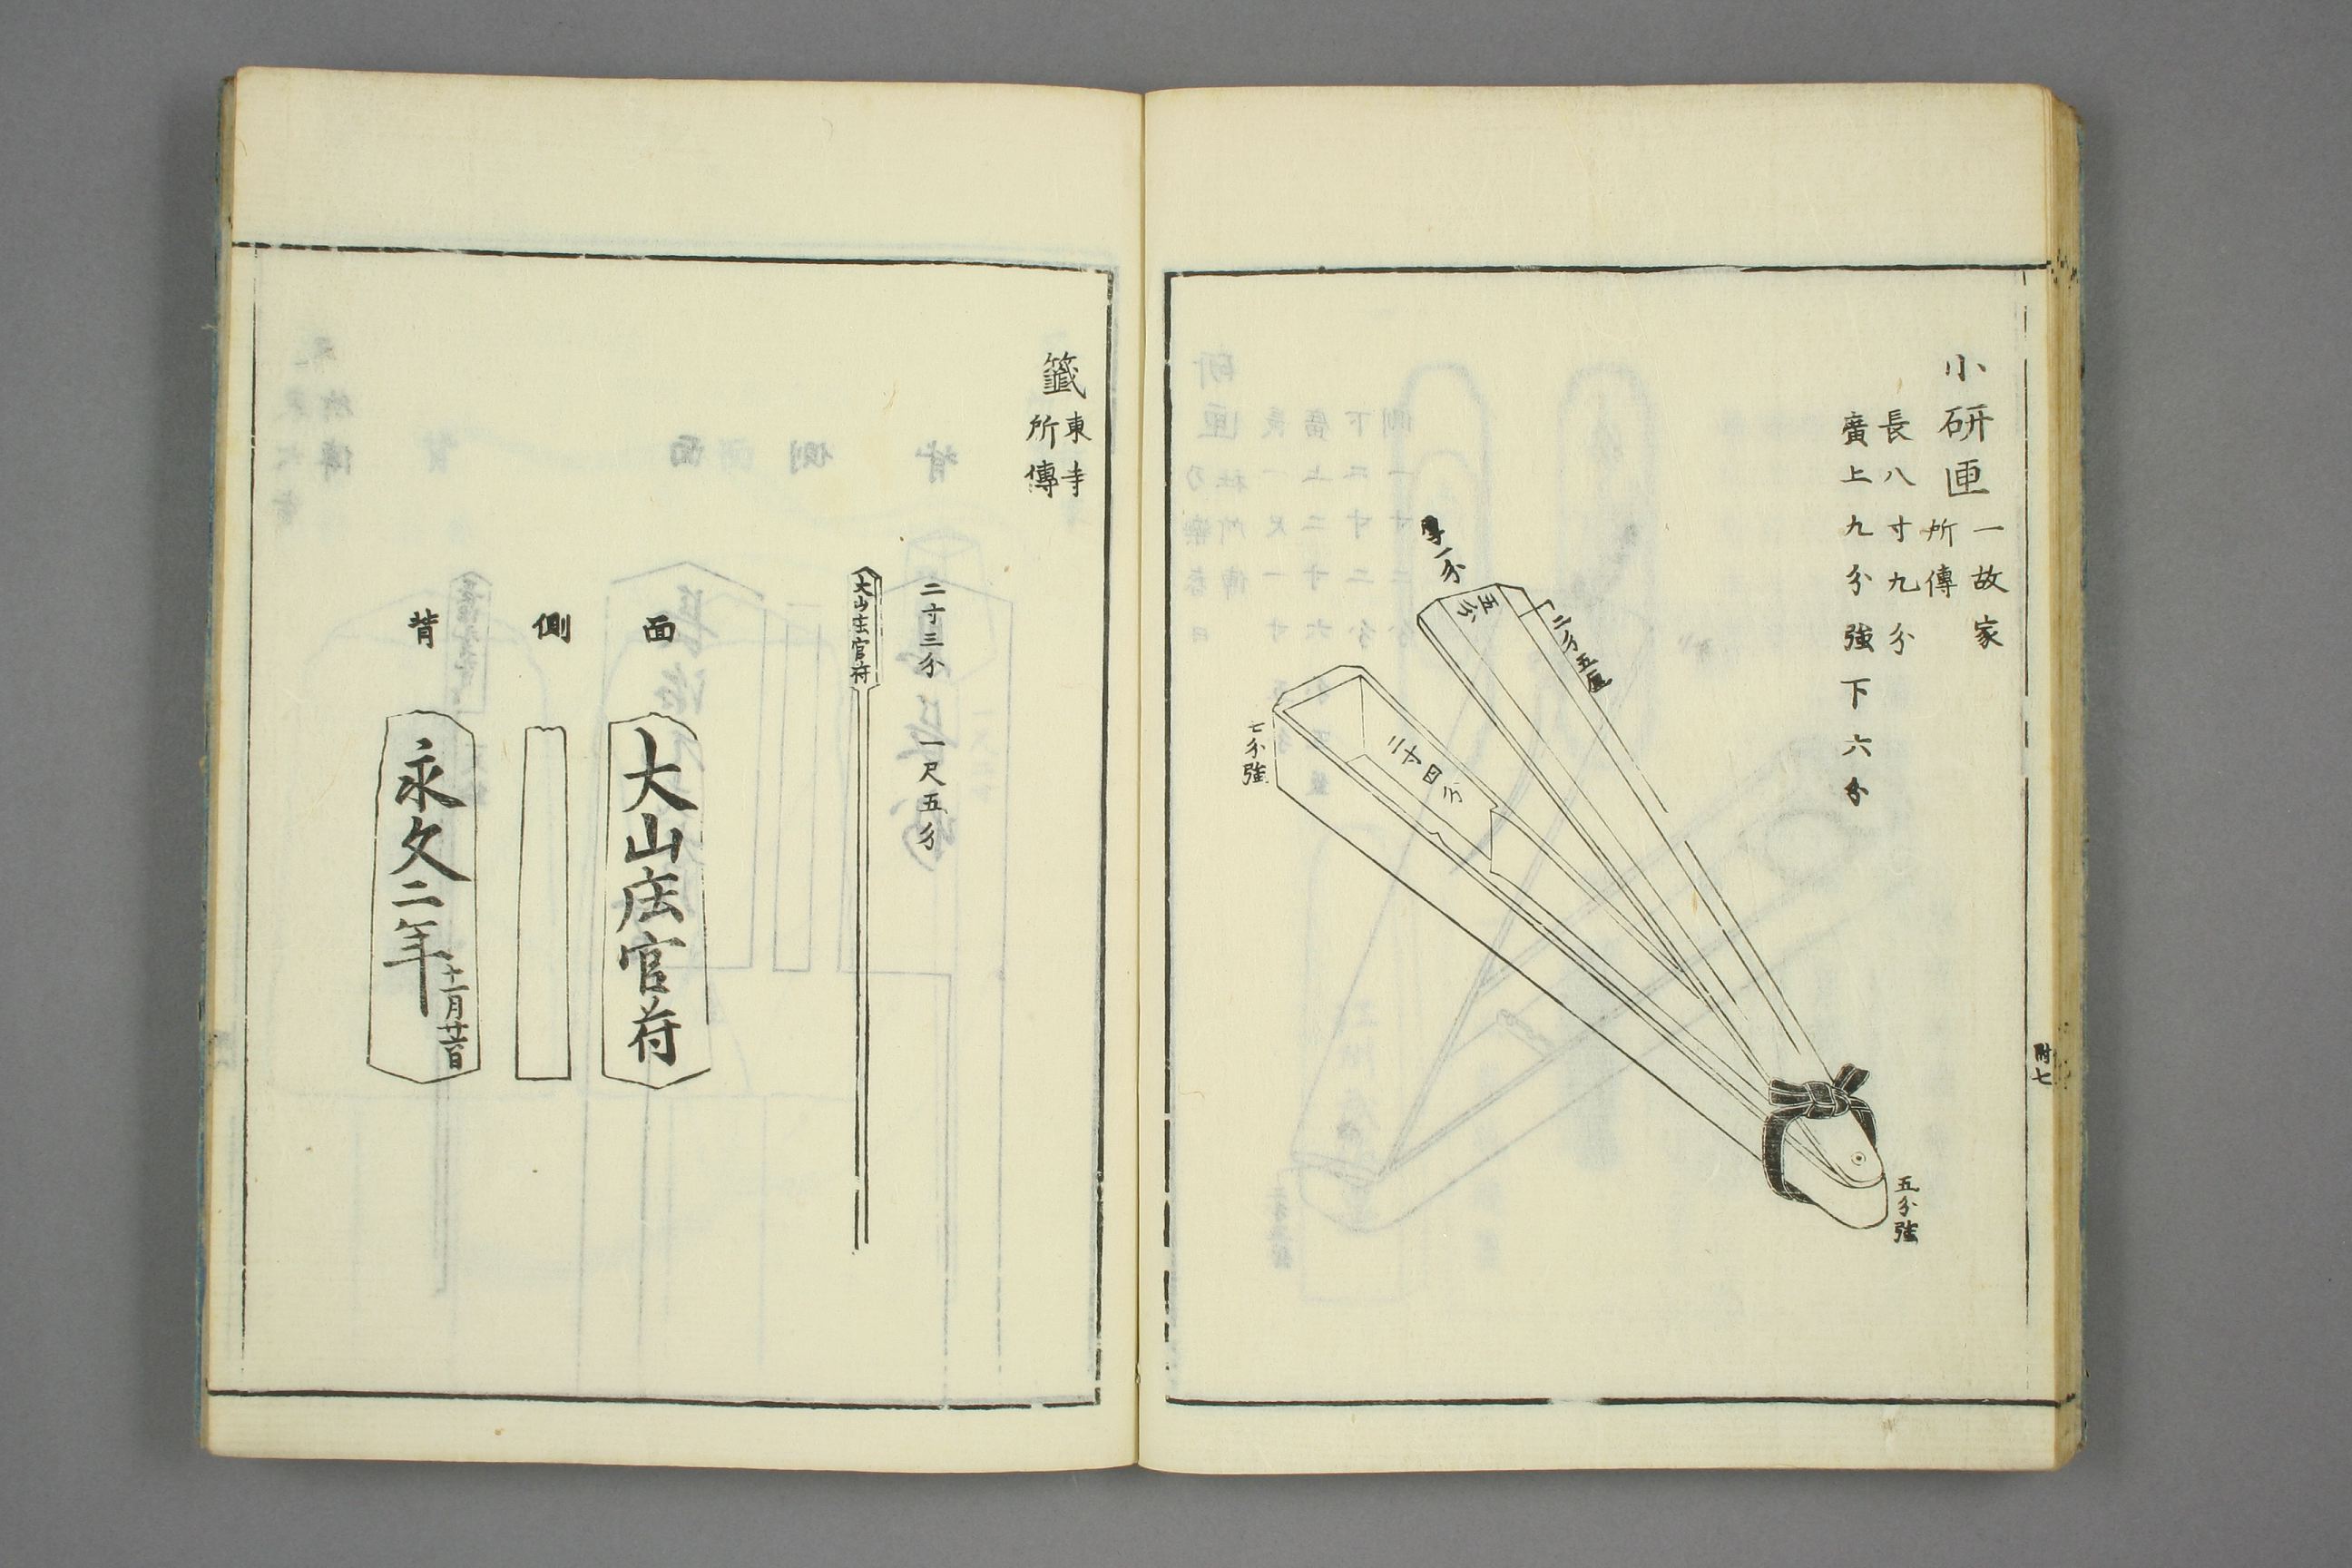 小研匣
一故家
所傳
長八寸九分
廣上九分強下六分
厚一分
五分
二分五厘
二寸四分
七分強
五分強
附七
籤
東寺
所傳
二寸三分
一尺五分
大山庄官符
面
大山庄官符
側
背
永久二年
十二月廿